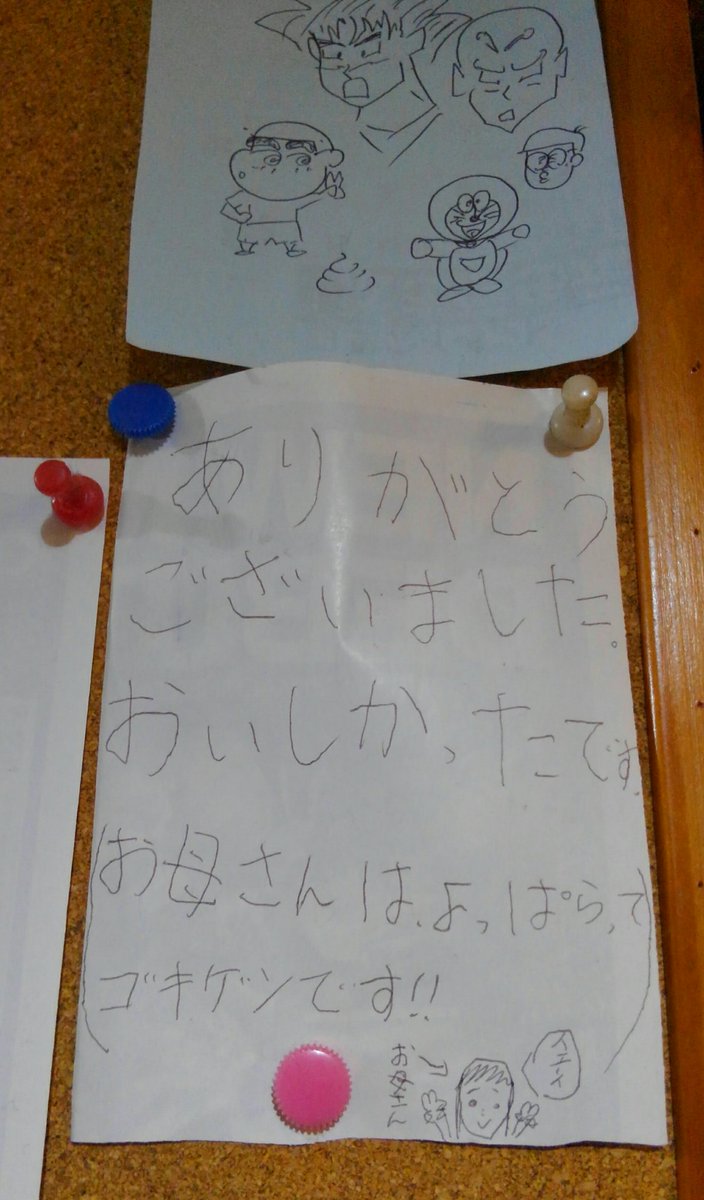 ありがとう
ございました。
おいしかったです。
(お母さんは、よっぱらって
ゴキゲンです!!)
お母さん
イエーイ